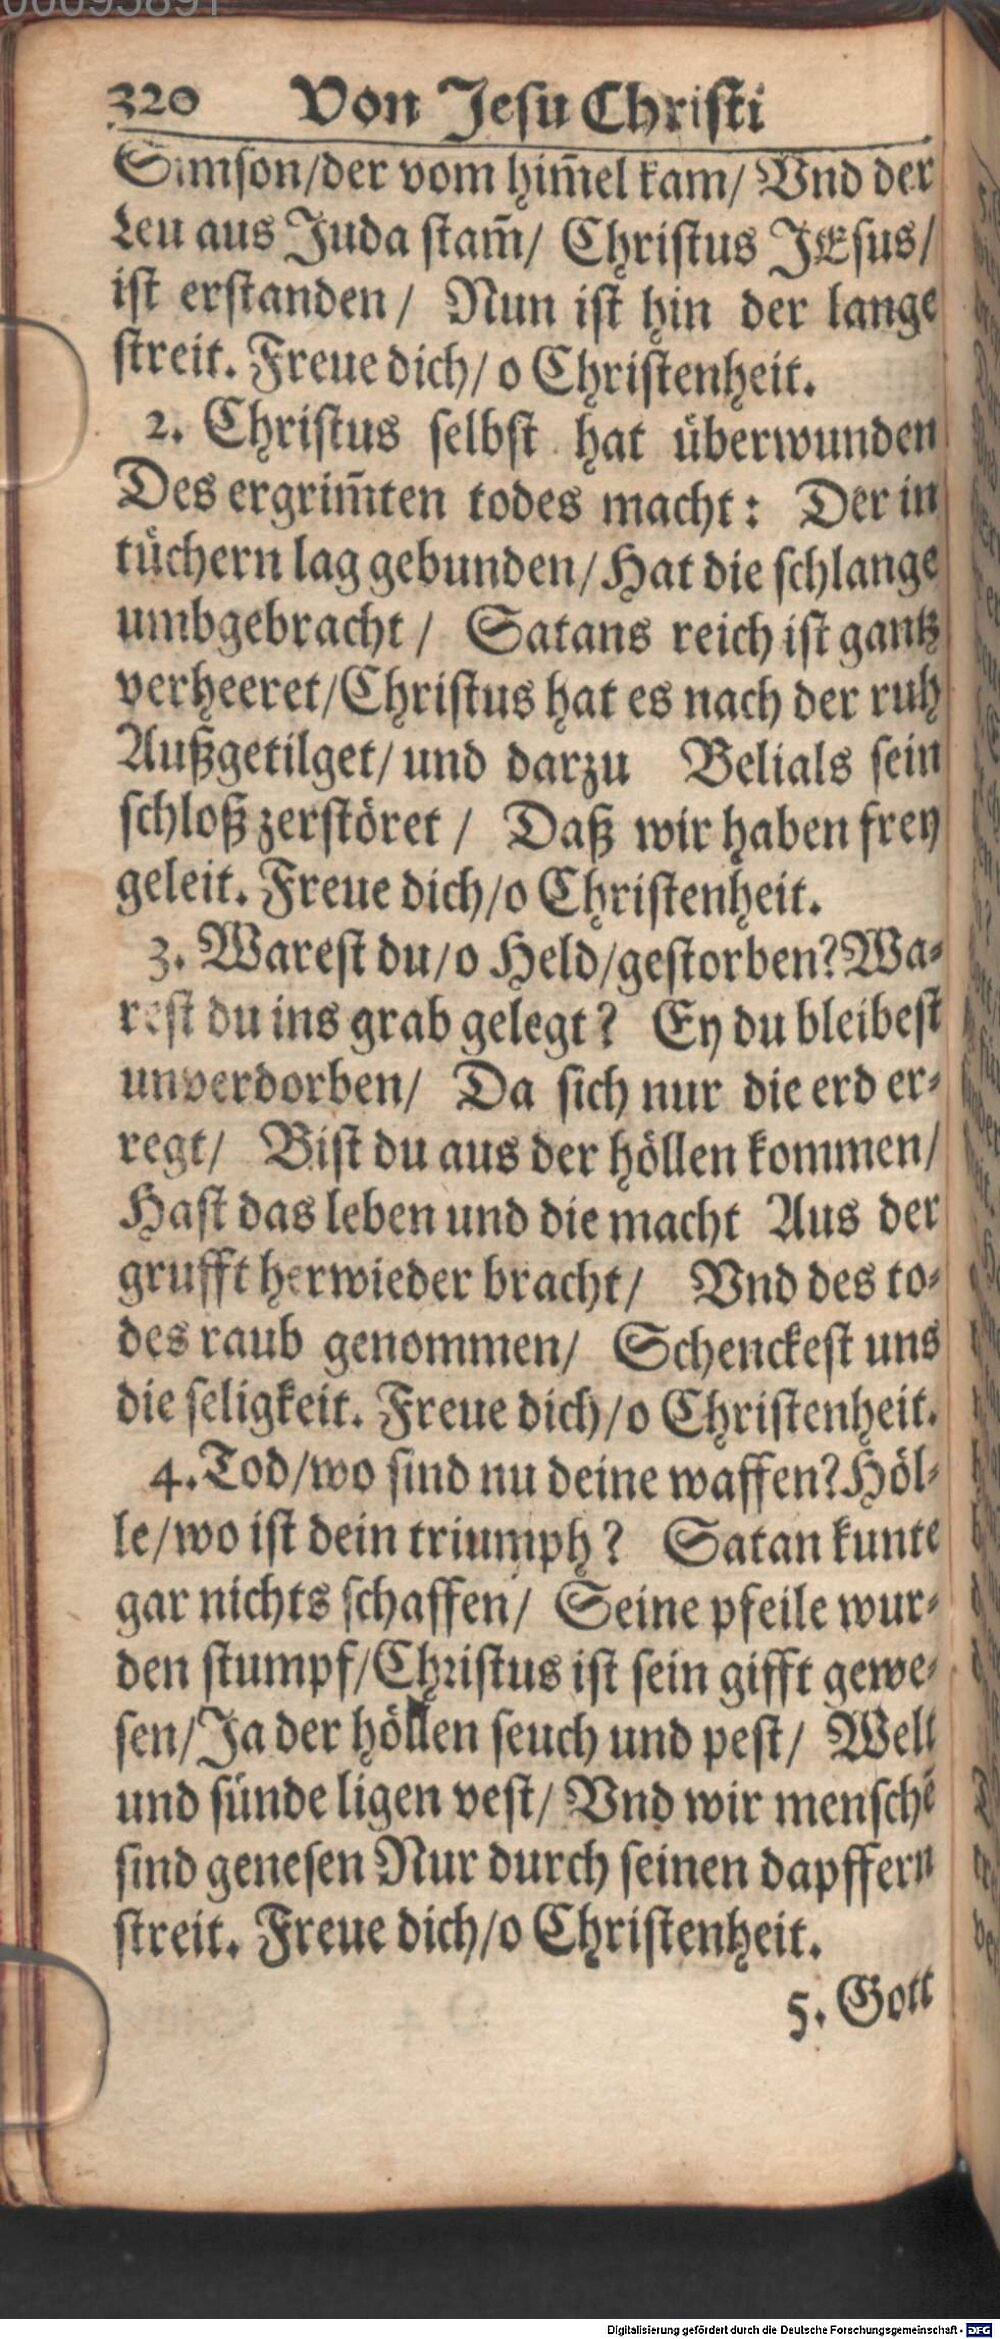 00095891
320 Von Jesu Christi
Simson/der vom him̃el kam/ Vnd der
Leu aus Juda stam̃/ Christus JEsus/
ist erstanden/ Nun ist hin der lange
streit. Freue dich/ o Christenheit.
2. Christus selbst hat überwunden
Des ergrim̃ten todes macht: Der in
tüchern lag gebunden/Hat die schlange
umbgebracht/ Satans reich ist gantz
verheeret/Christus hat es nach der ruh
Außgetilget/ und darzu Belials sein
schloß zerstöret/ Daß wir haben frey
geleit. Freue dich/o Christenheit.
3. Warest du/o Held/gestorben?Wa-
rest du ins grab gelegt? Ey du bleibest
unverdorben/ Da sich nur die erd er-
regt/ Bist du aus der höllen kommen/
Hast das leben und die macht Aus der
grufft herwieder bracht/ Vnd des to-
des raub genommen/ Schenckest uns
die seligkeit. Freue dich/o Christenheit.
4. Tod/wo sind nu deine waffen?Höl-
le/wo ist dein triumph? Satan kunte
gar nichts schaffen/ Seine pfeile wur-
den stumpf/Christus ist sein gifft gewe-
sen/Ja der höllen seuch und pest/ Welt
und sünde ligen vest/ Vnd wir menschẽ
sind genesen Nur durch seinen dapffern
streit. Freue dich/o Christenheit.
5. Gott
Digitalisierung gefördert durch die Deutsche Forschungsgemeinschaft - DFG